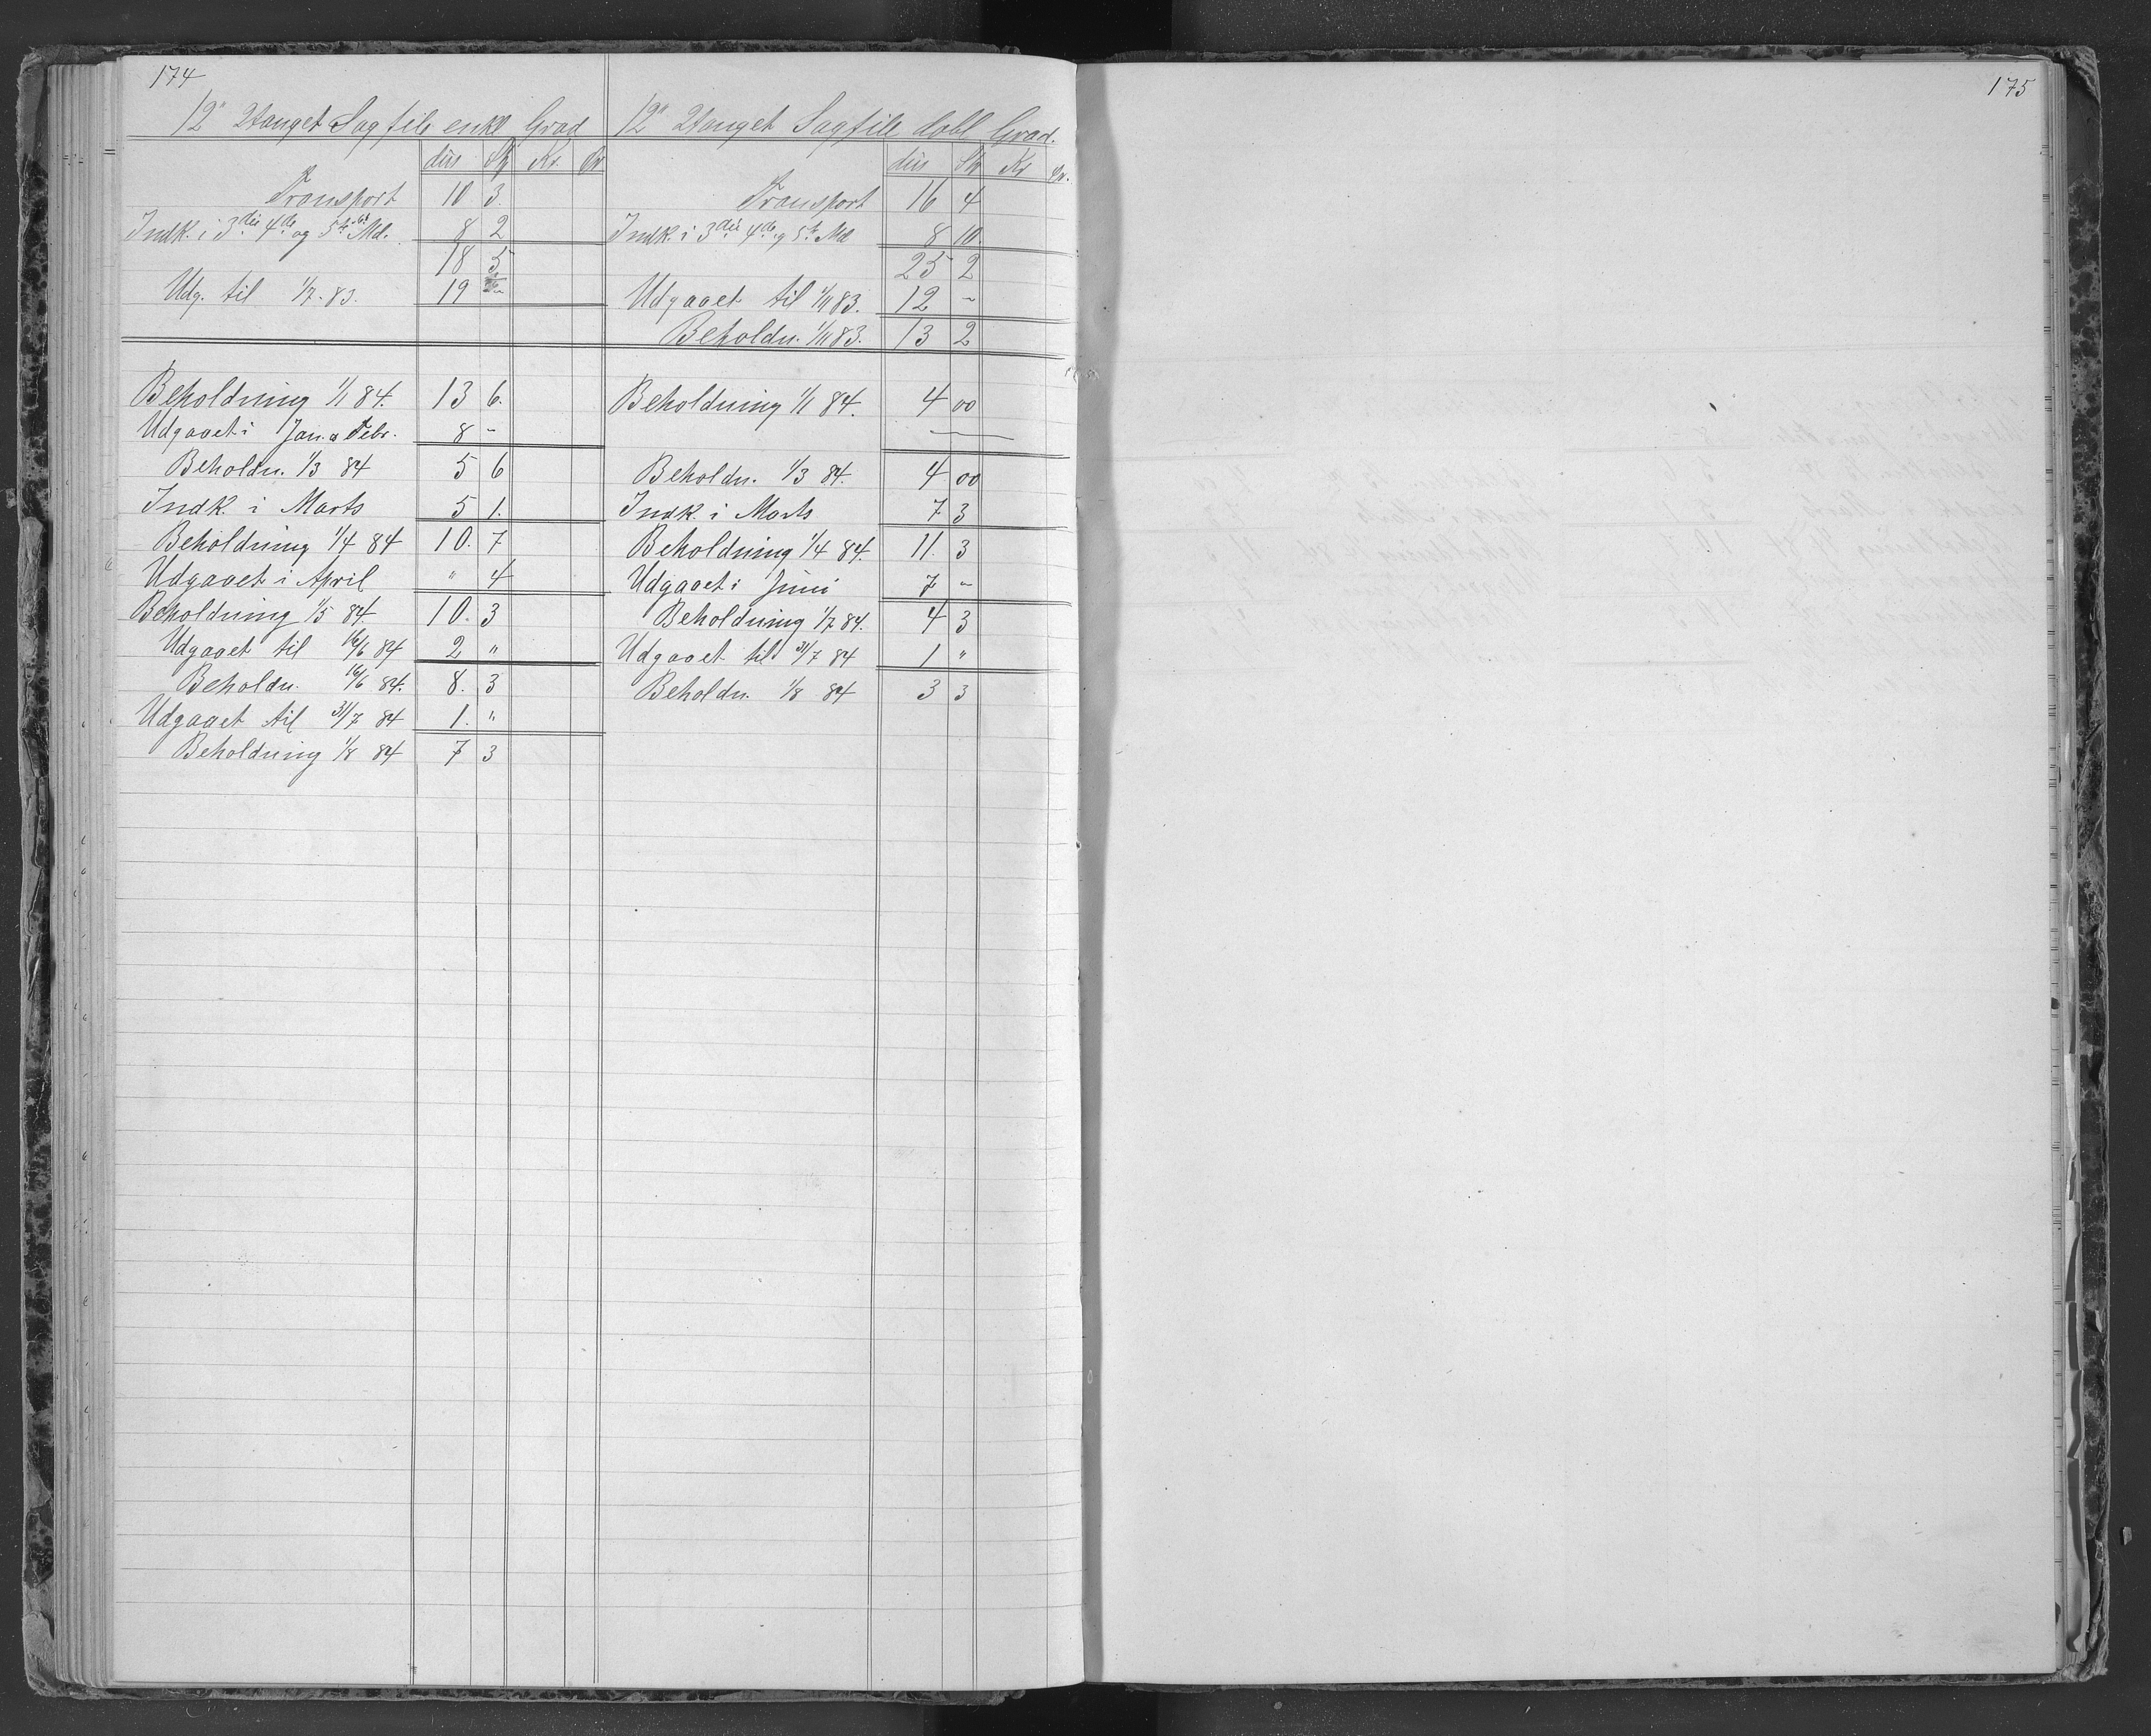 174
12" 2tanget Sagfile enkl Grad
dus Stk Kr. Ør
Transport 10 3.
Indk. i 3die 4de og 5te Md. 8 2
18 5
Udg. til 1/7. 83. 19 -
Beholdning 1/1 84. 13 6.
Udgaaet i Jan. & Febr. 8 -
Beholdn. 1/3 84 5 6
Indk. i Marts 5 1.
Beholdning 1/4 84 10. 7
Udgaaet i April " 4
Beholdning 1/5 84. 10. 3
Udgaaet til 16/6 84 2 "
Beholdn. 16/6 84. 8. 3
Udgaaet til 31/7 84 1. "
Beholdning 1/8 84 7 3
12" 2tanget Sagfile dobl Grad.
dus Stk Kr Ør.
Transport 16 4
Indk. i 3die 4de g 5te Md 8 10.
25 2
Udgaaet til 1/11 83. 12 -
Beholdn. 1/11 83. 13 2
Beholdning 1/1 84. 4 00
Beholdn. 1/3 84. 4 00
Indk. i Marts 7 3
Beholdning 1/4 84. 11. 3
Udgaaet i Juni 7 -
Beholdning 1/7 84. 4 3
Udgaaet til 31/7 84 1 "
Beholdn. 1/8 84 3 3
175